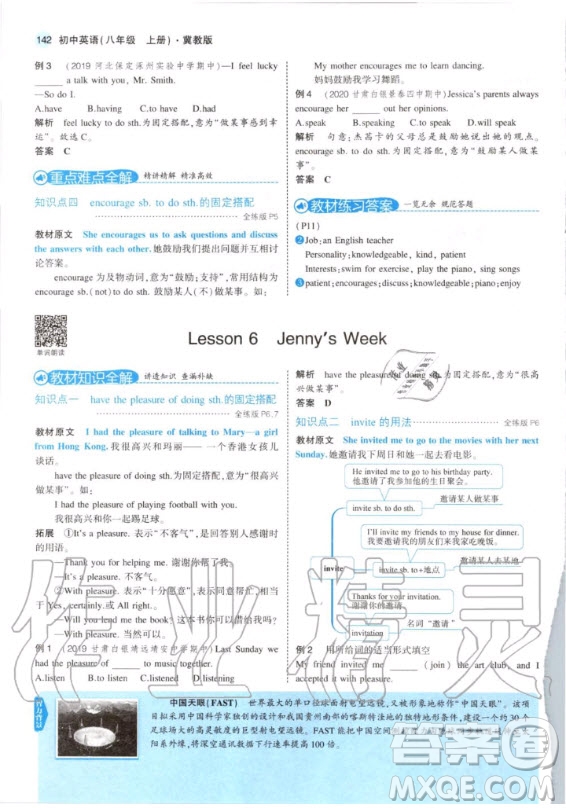 142 初中英语(八年级 上册)·冀教版
例 3 (2019 河北保定涿州实验中学期中)—I feel lucky
______ a talk with you, Mr. Smith.
—So do I.
A.have B.having C.to have D.had
解析 feel lucky to do sth.为固定搭配,意为“做某事感到幸
运”。故选 C。
答案 C
重点难点全解 精讲精解 精准高效
知识点四 encourage sb. to do sth.的固定搭配
全练版 P5
教材原文 She encourages us to ask questions and discuss
the answers with each other.她鼓励我们提出问题并互相讨
论答案。
encourage 为及物动词,意为“鼓励;支持”,常用结构为
encourage sb.(not) to do sth. 鼓励某人(不)做某事。如:
My mother encourages me to learn dancing.
妈妈鼓励我学习舞蹈。
例 4 (2020 甘肃白银景泰四中期中)Jessica's parents always
encourage her ______ out her opinions.
A.speak B.speaking C.to speak D.will speak
解析 句意:杰茜卡的父母总是鼓励她说出她的观点。
encourage sb. to do sth.为固定搭配,意为“鼓励某人做某
事”。
答案 C
教材练习答案 一览无余 规范答题
(P11)
2 Job:an English teacher
Personality:knowledgeable, kind, patient
Interests:swim for exercise, play the piano, sing songs
3 patient;encourages;discuss;knowledgeable;piano
单词朗读
Lesson 6 Jenny's Week
教材知识全解 讲透知识 查漏补缺
知识点一 have the pleasure of doing sth.的固定搭配
全练版 P6、7
教材原文 I had the pleasure of talking to Mary—a girl
from Hong Kong.我很高兴和玛丽——一个香港女孩儿
谈话。
have the pleasure of doing sth.为固定搭配,意为“很高兴
做某事”。如:
I had the pleasure of playing football with you.
我很高兴和你一起踢足球。
拓展 ①It's a pleasure. 表示“不客气”,是回答别人感谢时
的用语。
—Thank you for helping me. 谢谢你帮我。
—It's a pleasure. 不客气。
②With pleasure. 表示“十分愿意”,表示同意对方,相当
于 Yes, certainly.或 All right.。
—Will you lend me the book? 这本书你可以借给我吗?
—With pleasure. 当然可以。
例 1 (2019 甘肃白银靖远靖安中学期中) Last Sunday we
had the pleasure of ______ to music.
A.listen B.listens C.listened D.listening
解析 have the pleasure of doing sth.为固定搭配,意为“很高
兴做某事”。
答案 D
知识点二 invite 的用法
全练版 P6
教材原文 She invited me to go to the movies with her next
Sunday.她邀请我下周日和她一起去看电影。
He invited me to go to his birthday party.
他邀请了我去他的生日聚会。
invite sb. to do sth.
邀请某人做某事
I'll invite my friends to my house for dinner.
我要邀请我的朋友们来我家吃晚饭。
invite
invite sb. to+地点
邀请某人去某地
Thanks for your invitation.
谢谢你的邀请。
invitation
名词“邀请”
例 2 用所给词的适当形式填空
My friend invited me ______ (join) the art club, and I
accepted it with pleasure.
中国天眼(FAST) 世界最大的单口径球面射电望远镜,又被形象地称为“中国天眼”。该
项目拟采用中国科学家独创的设计和贵州南部的喀斯特洼地的独特地形条件,建设一个约 30 个
足球场大的高灵敏度的巨型射电望远镜。FAST能把中国空间
阳系外缘,将深空通讯数据下行速率提高 100 倍。
作业精灵
答案圈
MXQE.COM